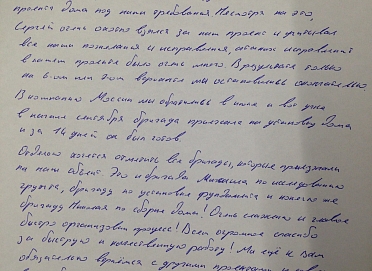 проекта дома под наши требования. Несмотря на это,
Сергей очень охотно взялся за наш проект и учитывал
все наши пожелания и исправления, а исправлений
в нашем проекте было очень много. В результате только
на 6-ом или 7ом варианте мы остановились окончательно.
В компанию Мэссии мы обратились в июле и вот уже
в начале сентября бригада приехала на установку дома
и за 14 дней он был готов.
Отдельно хочется отметить все бригады, которые приезжали
на наш объект. Это и бригада по исследованию
грунта, бригаду по установке фундамента и конечно же
бригаду Николая по сборке дома! Очень слаженно и главное
быстро организован процесс! Всем огромное спасибо
за быструю и качественную работу! Мы ещё к вам
обязательно вернёмся с другими проектами